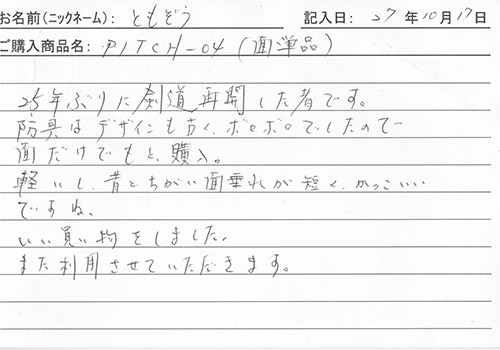 お名前(ニックネーム): ともぞう 記入日: 27年10月17日
ご購入商品名: PITCH-04 (面単品)
25年ぶりに剣道再開した者です。
防具はデザインも古く、ボロボロでしたので
面だけでもと、購入。
軽いし、昔とちがい面垂れが短く、かっこいい
ですね。
いい買い物をしました。
また利用させていただきます。